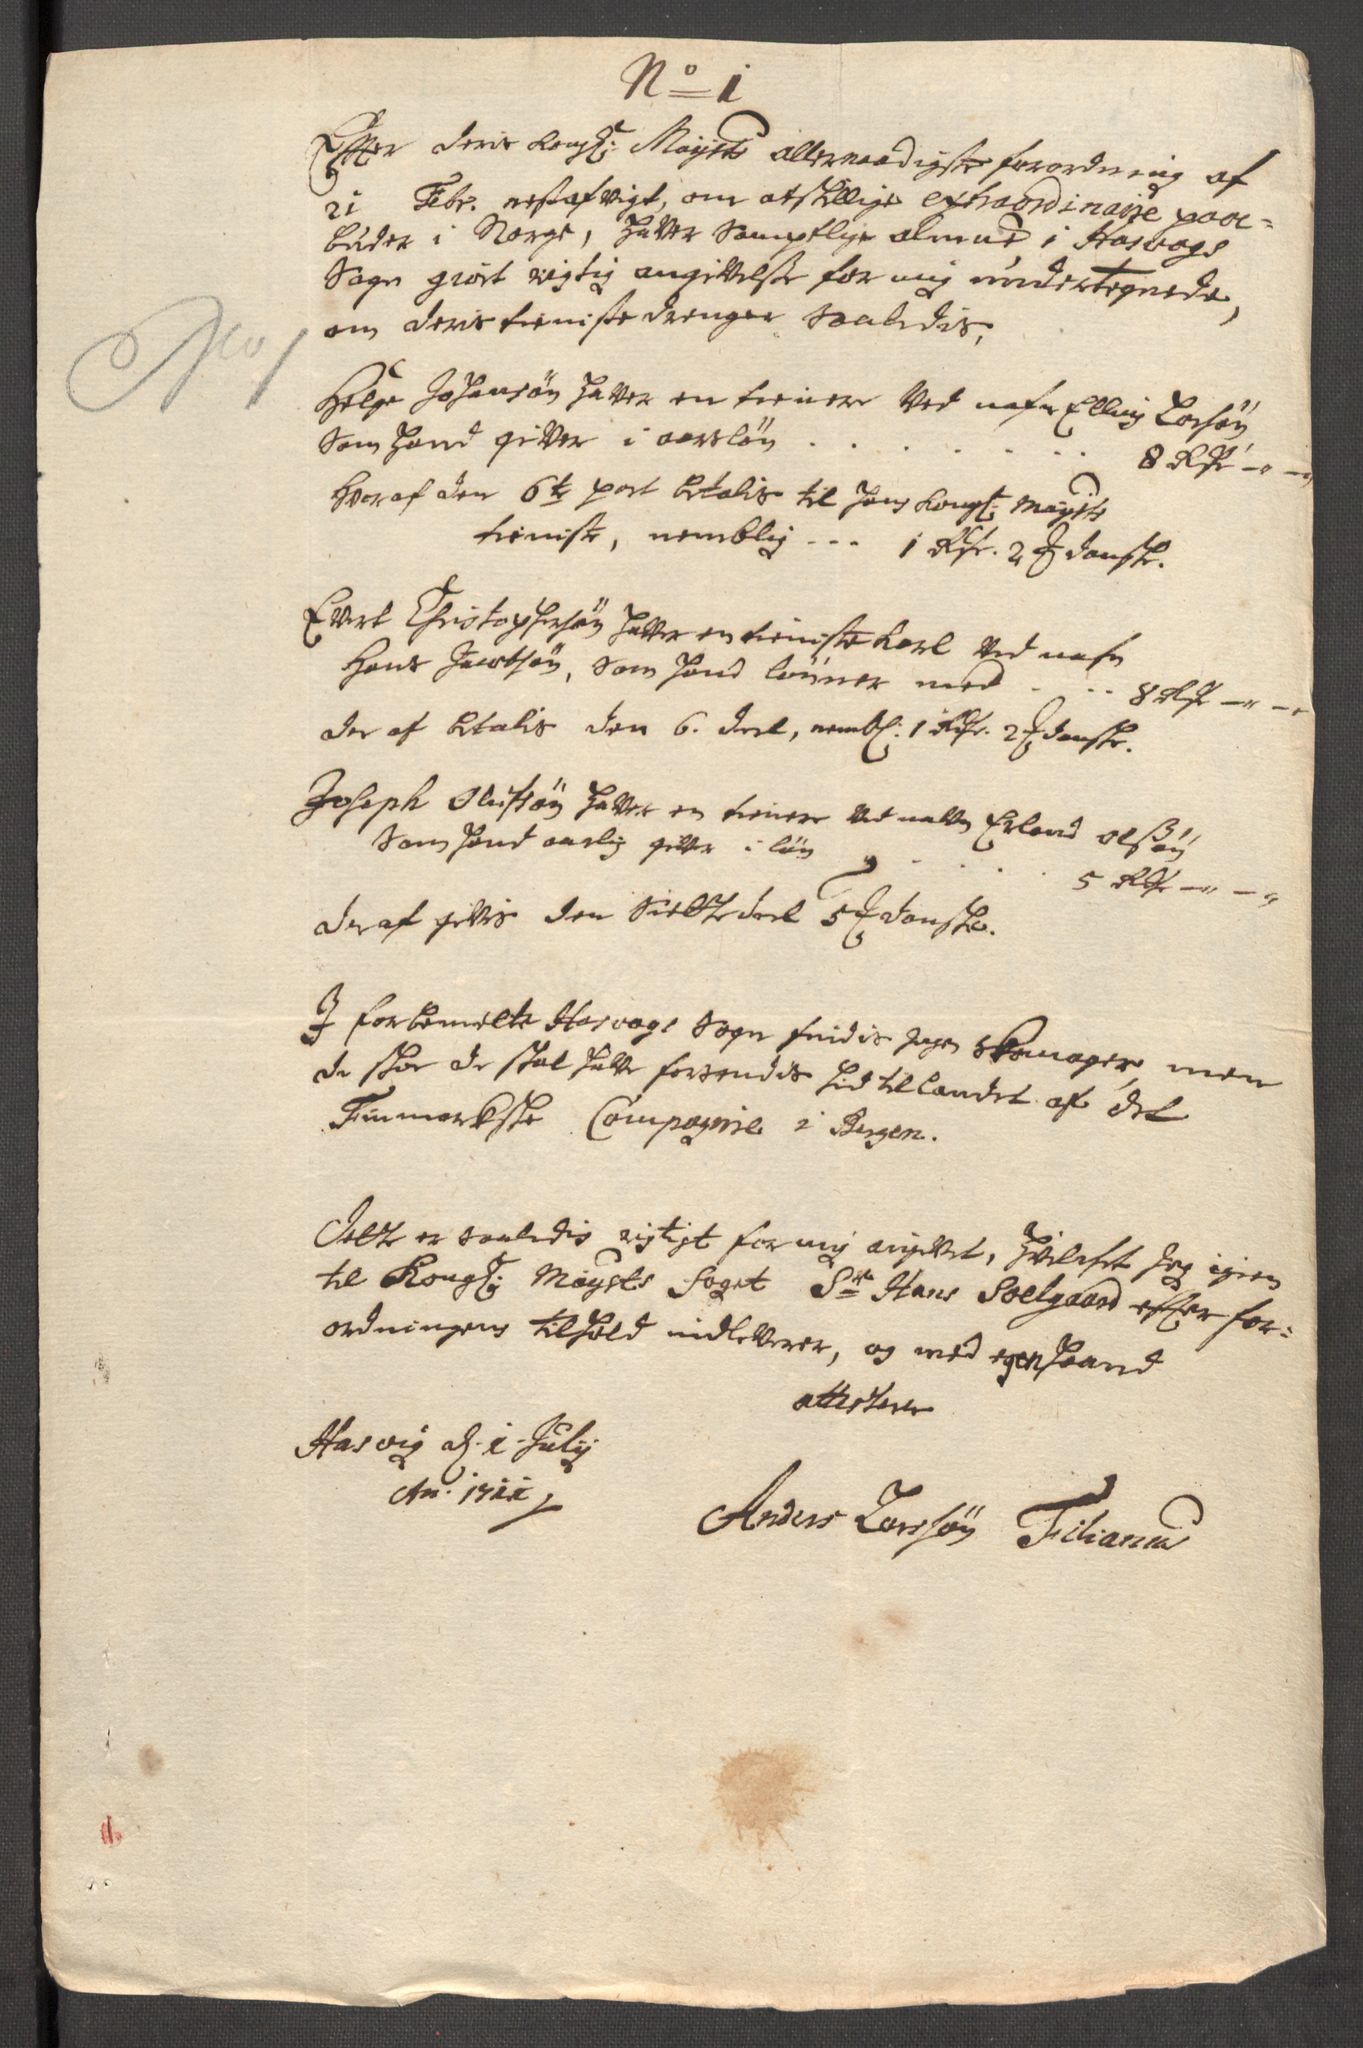 No 1
Effter deris Kongl: Mayts allernaadigste forordning af
21 Febr. nestafvigt, om atskillige extraordinaire paa-
buder i Norge, haver samptlige almue i Hasvogs
Sogn giort rigtig angivelse for mig undertegnede,
om deris tieniste drenger saaledis,
No 1
Helge Johansøn haver en tienere ved nafn Elling Larsøn
som hand giver i aarsløn . . . . . . . 8 Rdr - " - "
hvoraf den 6te part betalis til hans Kongl: Mayts
tieniste, nemblig - - - 1 Rdr. 2 ℔ danske.
Evert Christophersøn haver en tieniste karl ved nafn
Hans Jacobsøn, som hand lønner med . . . 8 Rdr - " - "
der af betalis den 6. deel, nembl: 1 Rdr. 2 ℔ danske.
Joseph Olufsøn haver en tienere ved nafn Erland Olssøn
som hand aarlig giver i løn . . . . . 5 Rdr - " - "
der af givis den siette deel 5 ℔ danske.
I forbemelte Hasvogs Sogn findis ingen Skomager, men
de skoe de skal have forsendis hid til landet af det
Finmarkske Compagnie i Bergen.
Dette er saaledis rigtigt for mig angivet, hvilcket jeg igien
til Kongl: Mayts foget Sr Hans Soelgaard effter for-
ordningens tilhold indleverer, og med egen haand
attesterer
Hasvig d. 1 July
An. 1711
Anders Larssøn Filianus